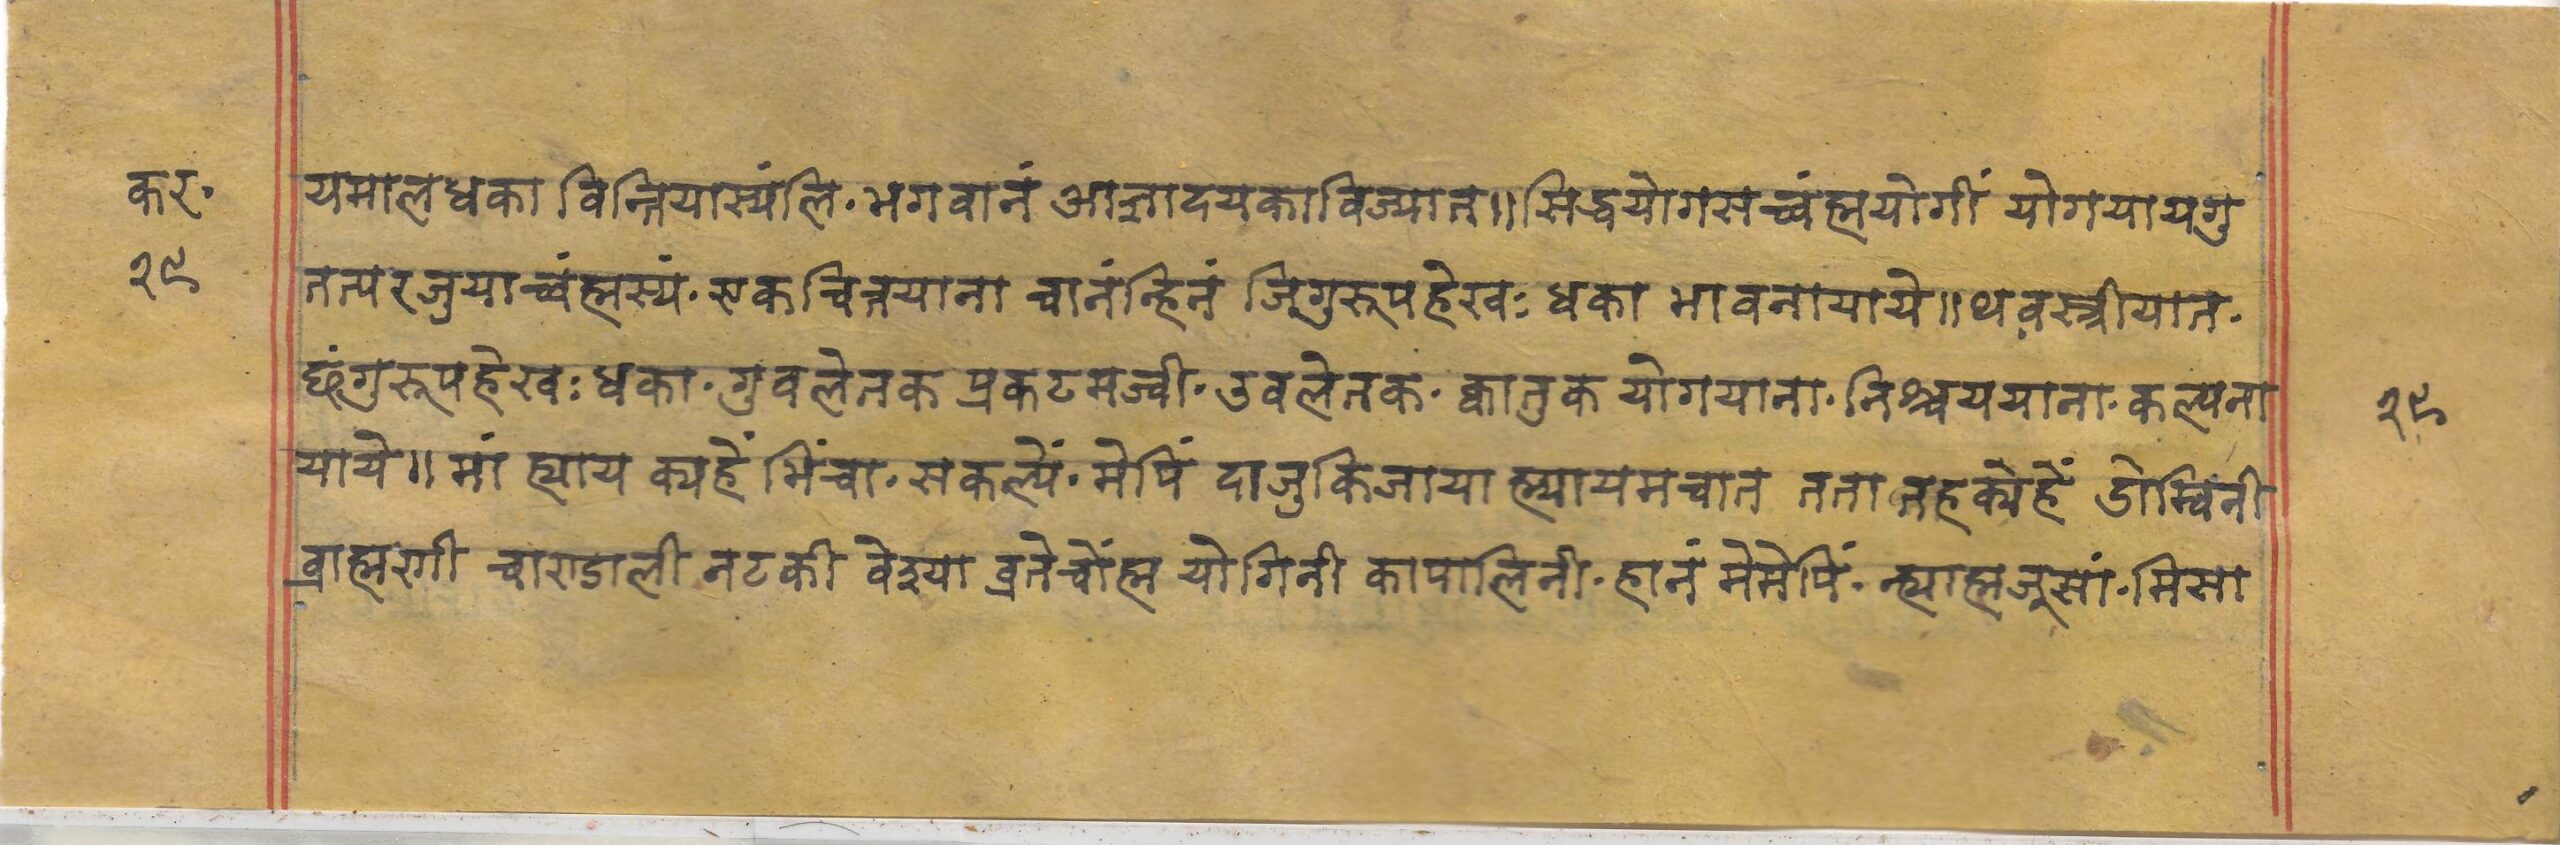 कर॰ यमालधका विन्तियास्यंलि॰भगवानं आज्ञादयकाविज्यात॥सिद्धयोगसच्वंह्मयोगीं योगयायगु
२९ तत्परजुयाच्वंह्मस्यं॰एकचित्तयाना च्वानंन्हिनं जिगुरूपहेखः धका भावनायाये॥थवस्त्रीयात॰
छंगुरूपहेखः धका॰गुवलेतक प्रकटमज्वी॰उवलेतक॰क्वातुक योगयाना॰निश्चययाना॰कल्पना २९
याये॥मां ह्याय क्यहें भिंचा॰सकल्यें॰मेपिं दाजुकिजाया ह्म्यायमचात तता तहक्येहें डोम्बिनी
ब्राह्मणी चाण्डाली नटकी वेश्या व्रतेचोंह्म योगिनी कापालिनी॰हानं मेमेपिं॰न्ह्याह्मजूसां॰मिसा